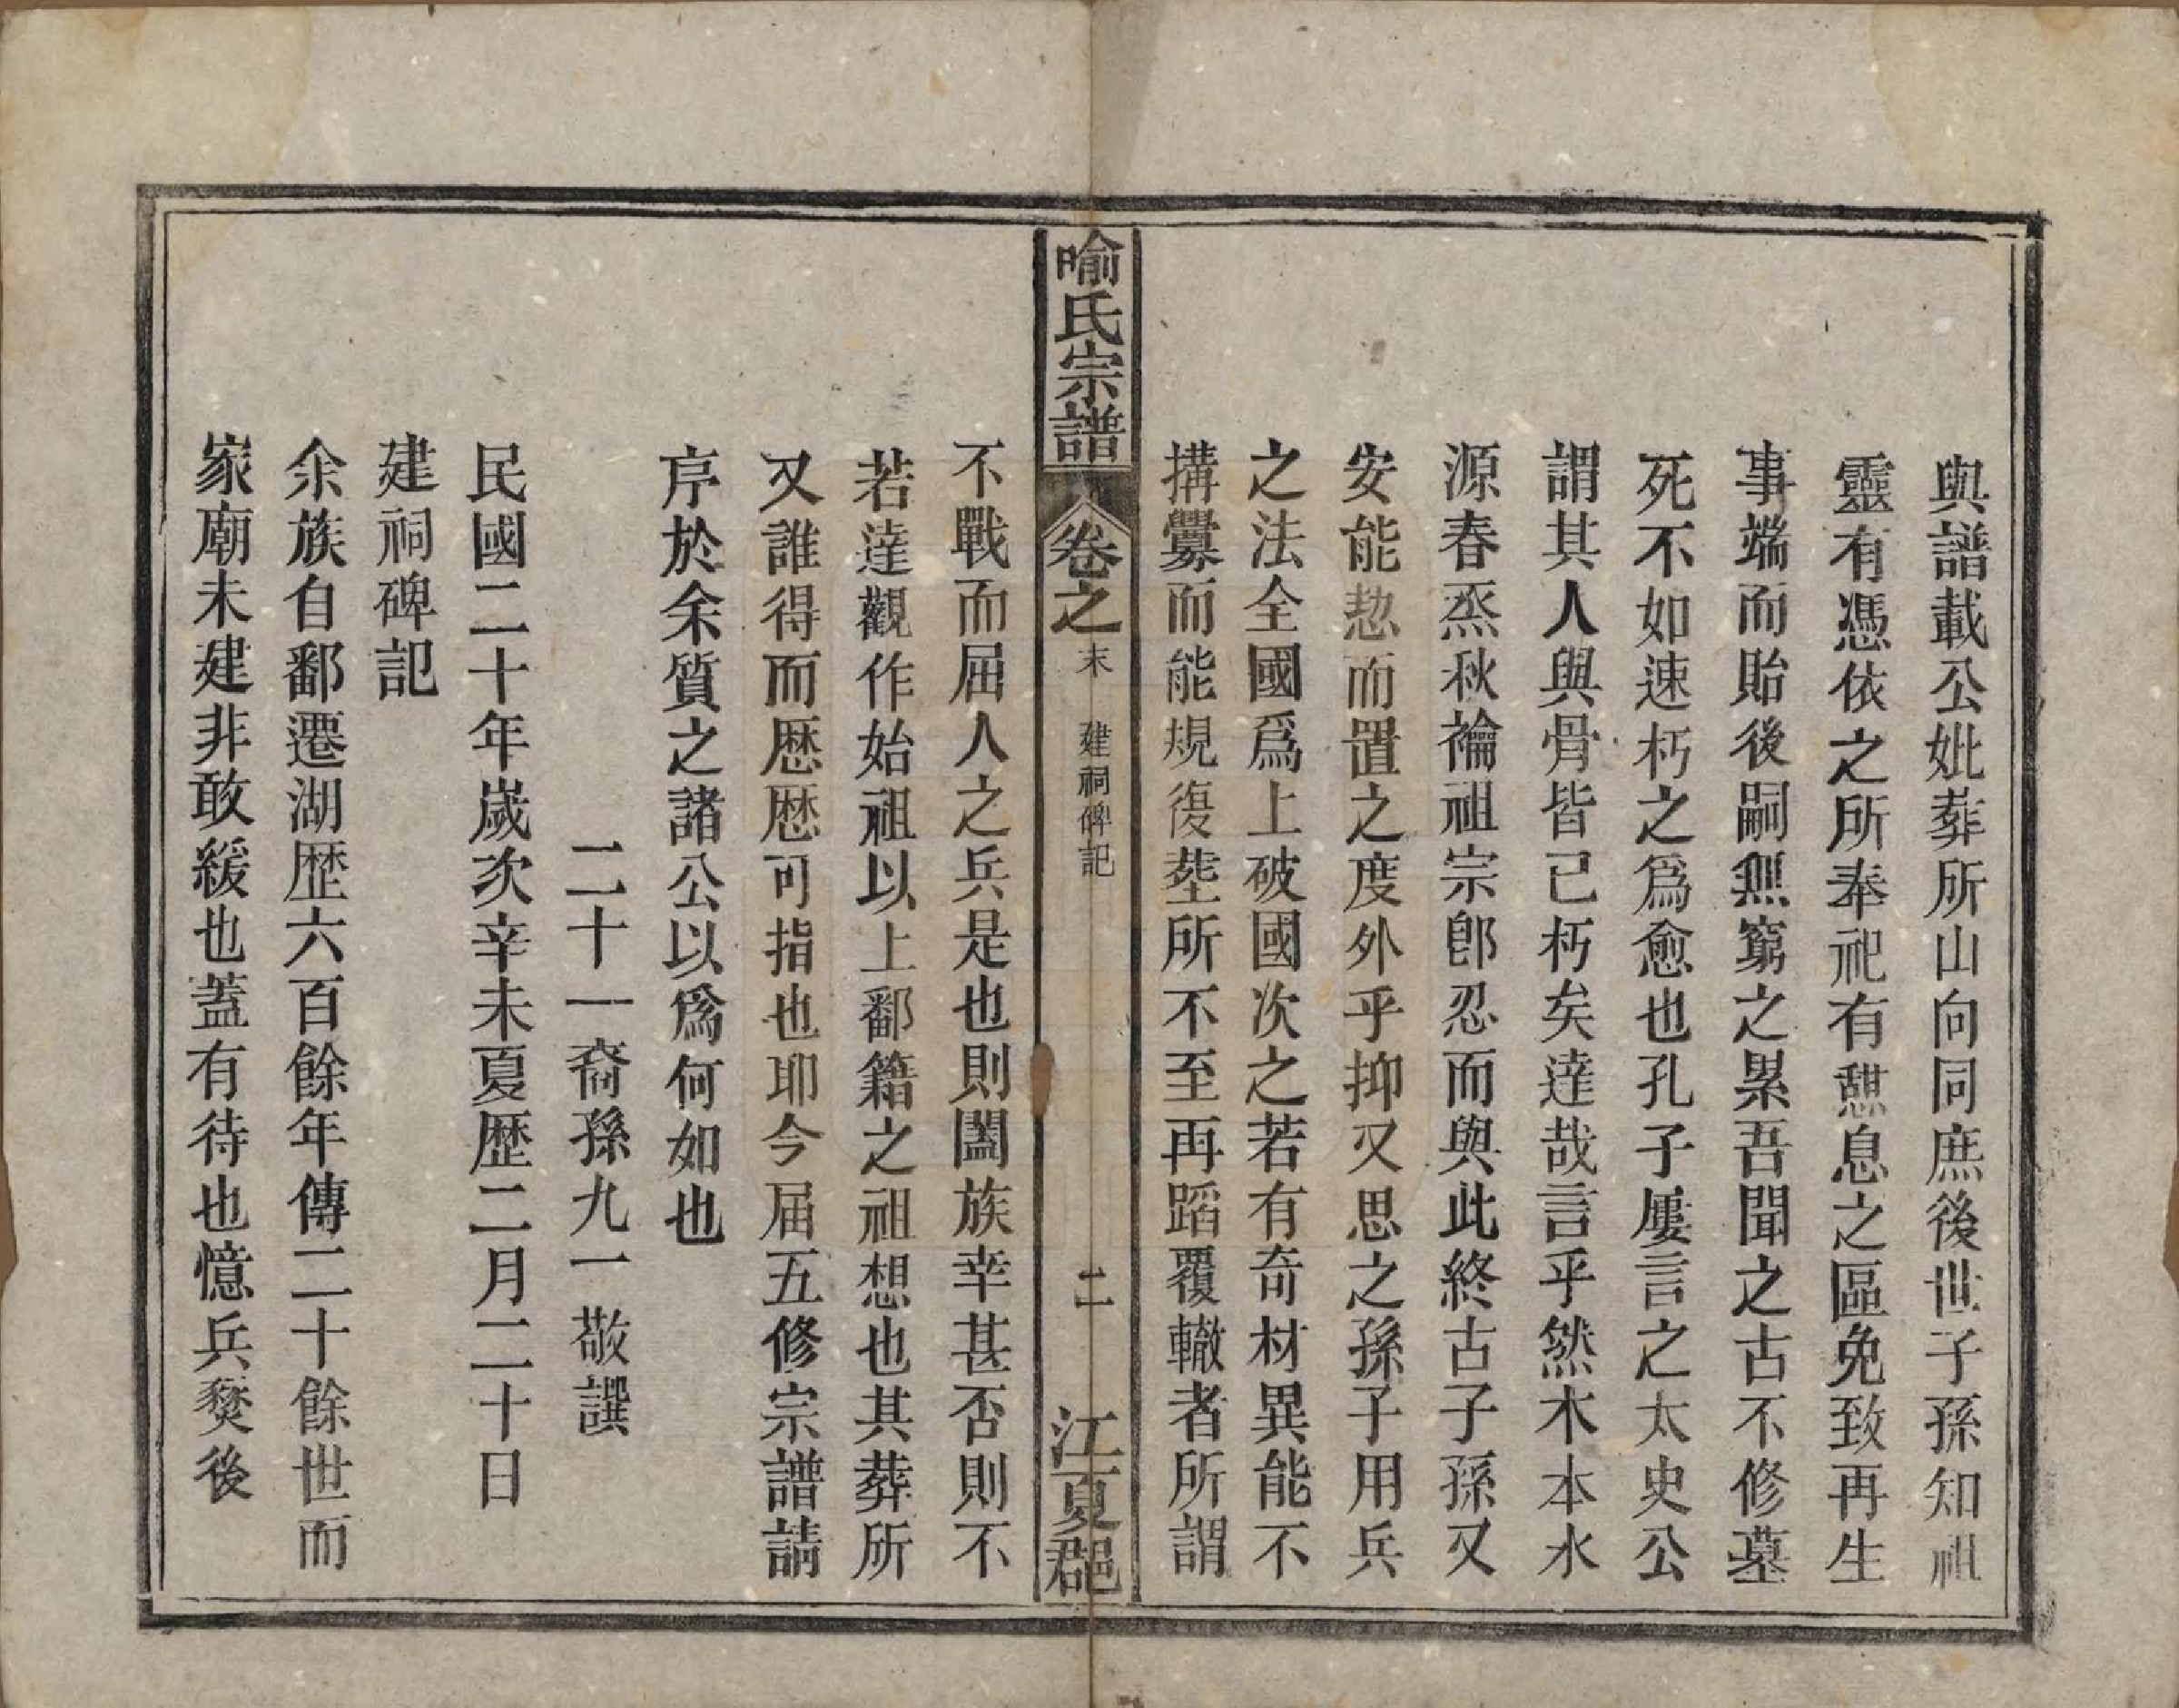 與譜載公妣葬所山向同庶後世子孫知祖
靈有憑依之所奉祀有憇息之區免致再生
事端而貽後嗣無窮之累吾聞之古不修墓
死不如速朽之爲愈也孔子屢言之太史公
謂其人與骨皆已朽矣達哉言乎然木本水
源春烝秋禴祖宗卽忍而與此終古子孫又
安能恝而置之度外乎抑又思之孫子用兵
之法全國爲上破國次之若有奇材異能不
搆釁而能規復塋所不至再蹈覆轍者所謂
喻氏宗譜
卷之末
建祠碑記
二
江夏郡
不戰而屈人之兵是也則闔族幸甚否則不
若達觀作始祖以上鄱籍之祖想也其葬所
又誰得而歷歷可指也耶今届五修宗譜請
序於余質之諸公以爲何如也
二十一裔孫九一敬譔
民國二十年歲次辛未夏歷二月二十日
建祠碑記
余族自鄱遷湖歷六百餘年傳二十餘世而
家廟未建非敢緩也蓋有待也憶兵燹後